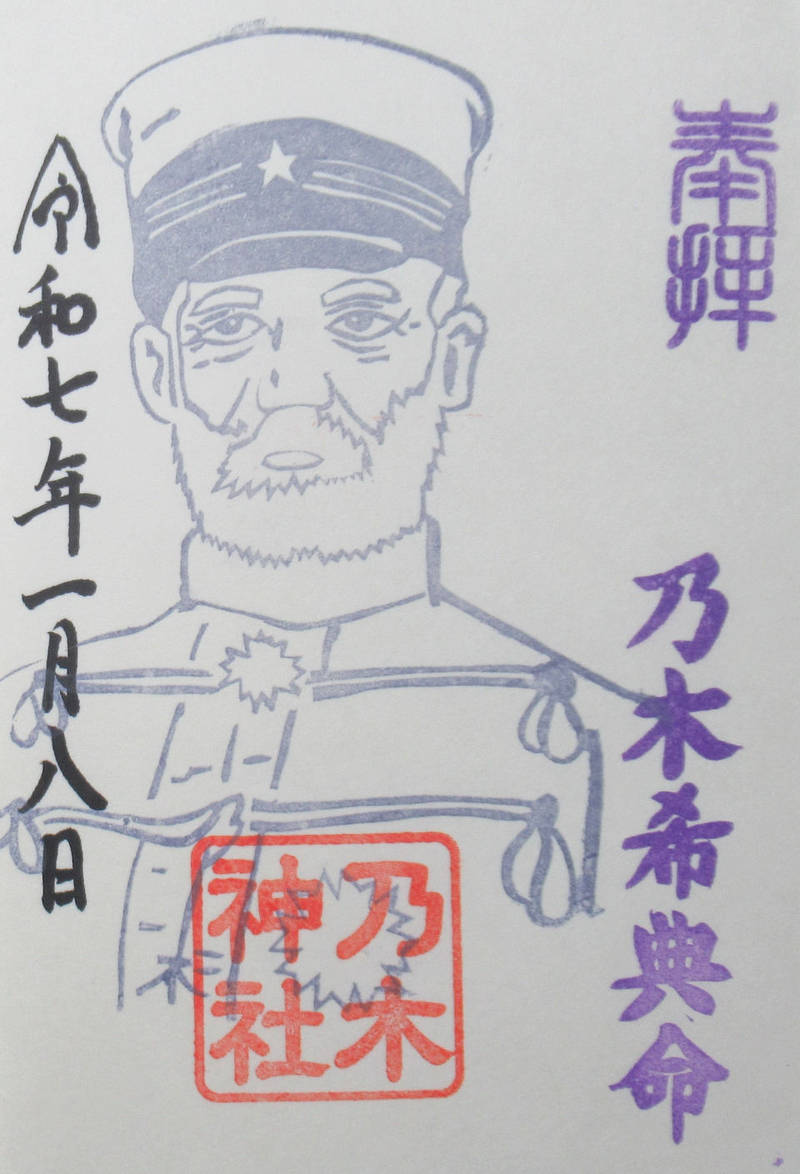 奉拝
乃木希典命
乃木
神社
令和七年一月八日